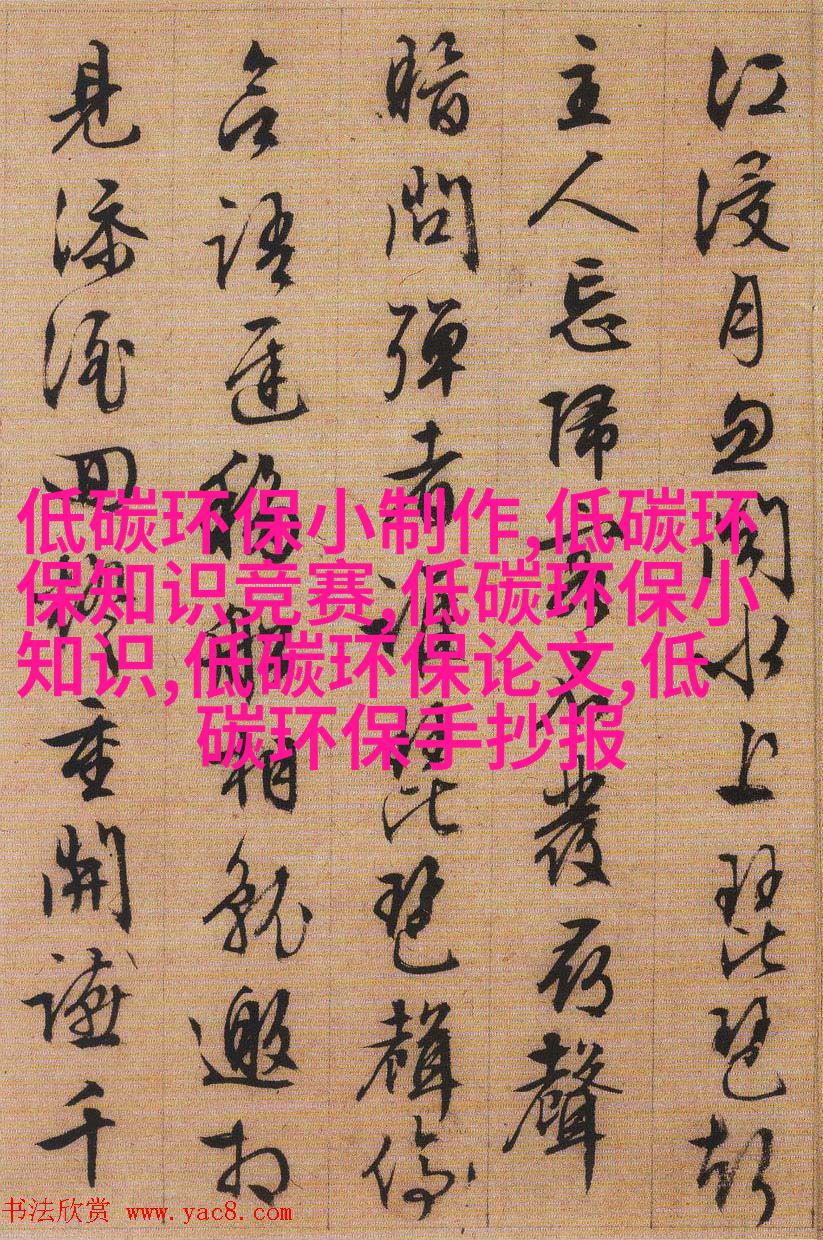 江浸月忽聞水上琵琶
主人忘歸客不發尋聲
暗問彈者誰琵琶聲停
語遲移船相就邀相
見添酒回燈重開讌千
低碳环保小制作,低碳环
保知识竞赛,低碳环保小
知识,低碳环保论文,低
碳环保手抄报
书法欣赏 www.yac8.com